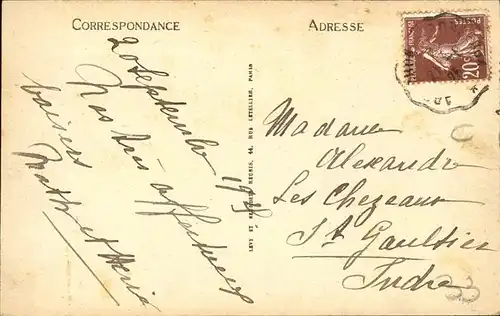 CORRESPONDANCE
ADRESSE
20 Septembre 19
Nos très affectueux
baisers
LEVY ET NEURDEIN RÉUNIS, 44, RUE LETELLIER, PARIS
POSTES
FRANÇAISE
20c
Madame
Alexandre
Les Chezeaux
St Gaultier
Indre
33